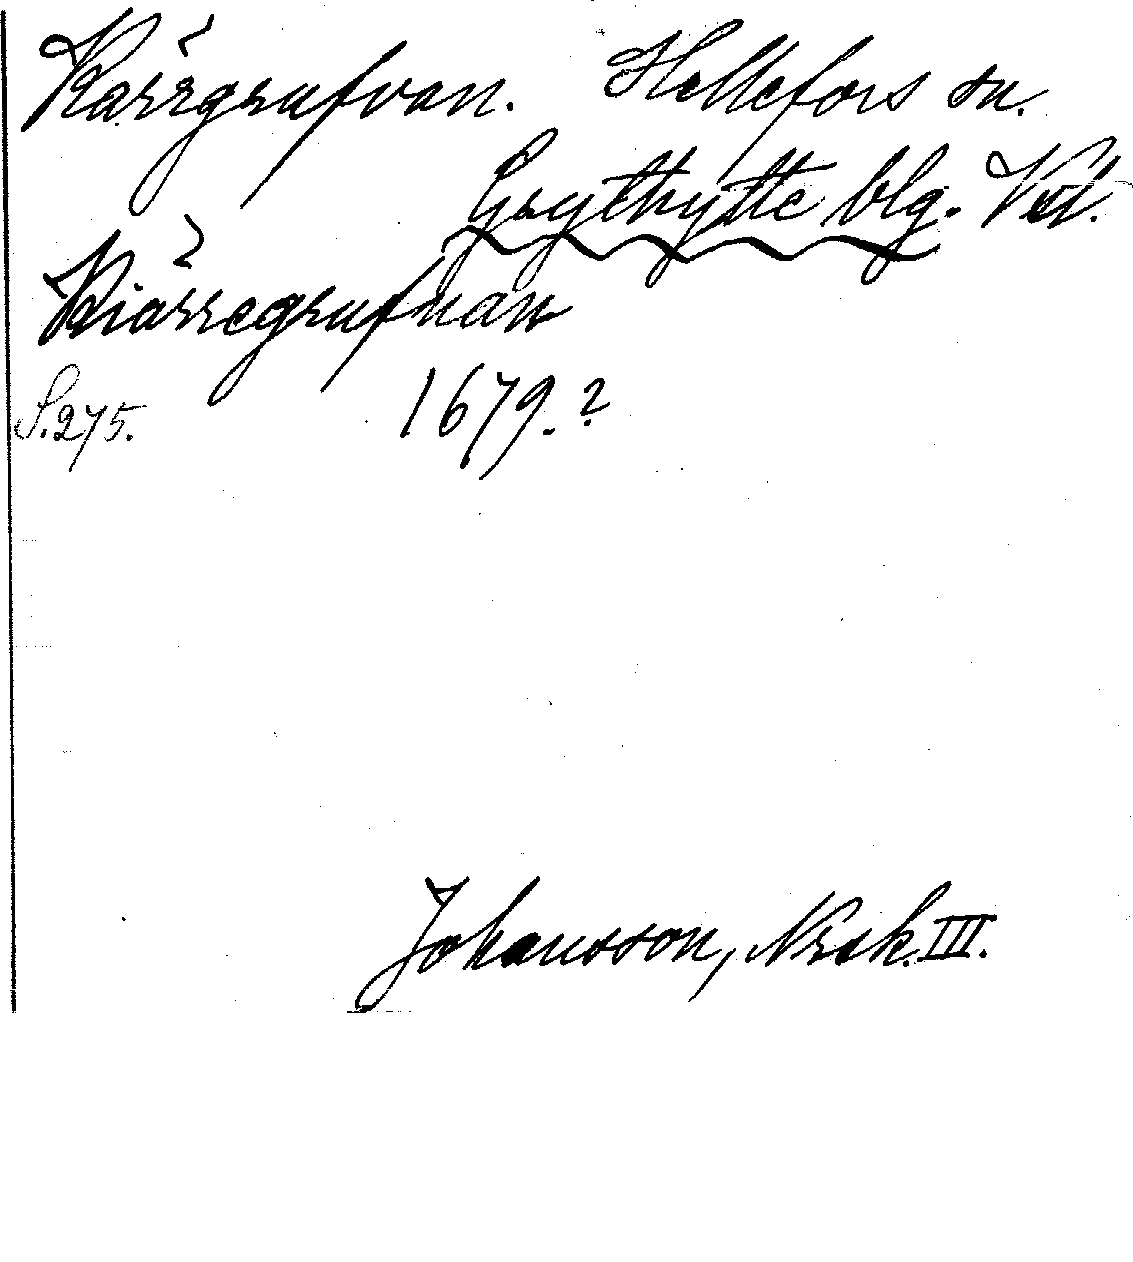 Karrgrufvan. Hellefors sn.
Grythytte blg.
Kiarregrufuan
S.275. 1679.?
Johansson, Nrsk. III.